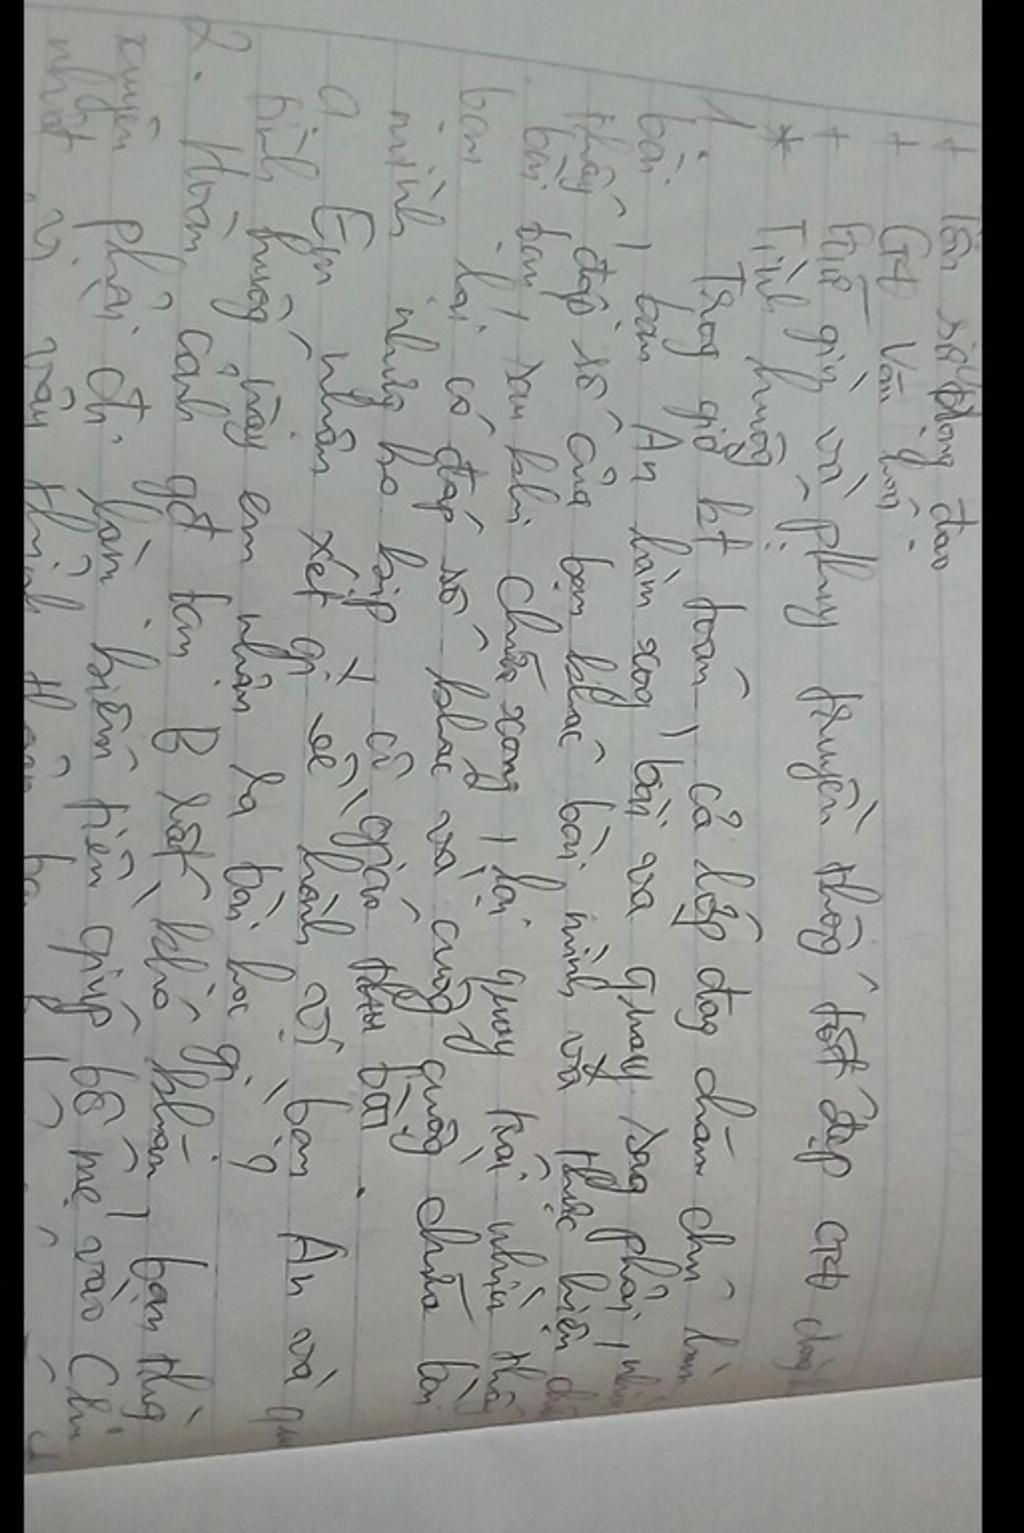 + Tôn sư trọng đạo
+ GĐ văn hoá.
+ Giữ gìn và phuy truyền thống tốt đẹp GĐ dòng
* Tình huống
1. Trog giờ kt toán, cả lớp đag chăm chú làm
bài, bạn An làm xog bài và quay sag phải, nhìn
thấy đáp số của bạn khác bài mình và thực hiện
bài bạn, sau khi chữa xong, lại quay trái nhìn thấy
bạn lại có đáp số khác và cuống quồng chữa bài
mình nhưg ko kịp vì cô giáo thu bài.
a Em nhận xét gì về hành vi bạn An và qua
tình huống này em nhận ra bài học gì
2. Hoàn cảnh gđ bạn B rất khó khăn, bạn thg
xuyên phải đi làm kiếm tiền giúp bố mẹ, vào Chủ
nhật, vì vậy thỉnh thoản